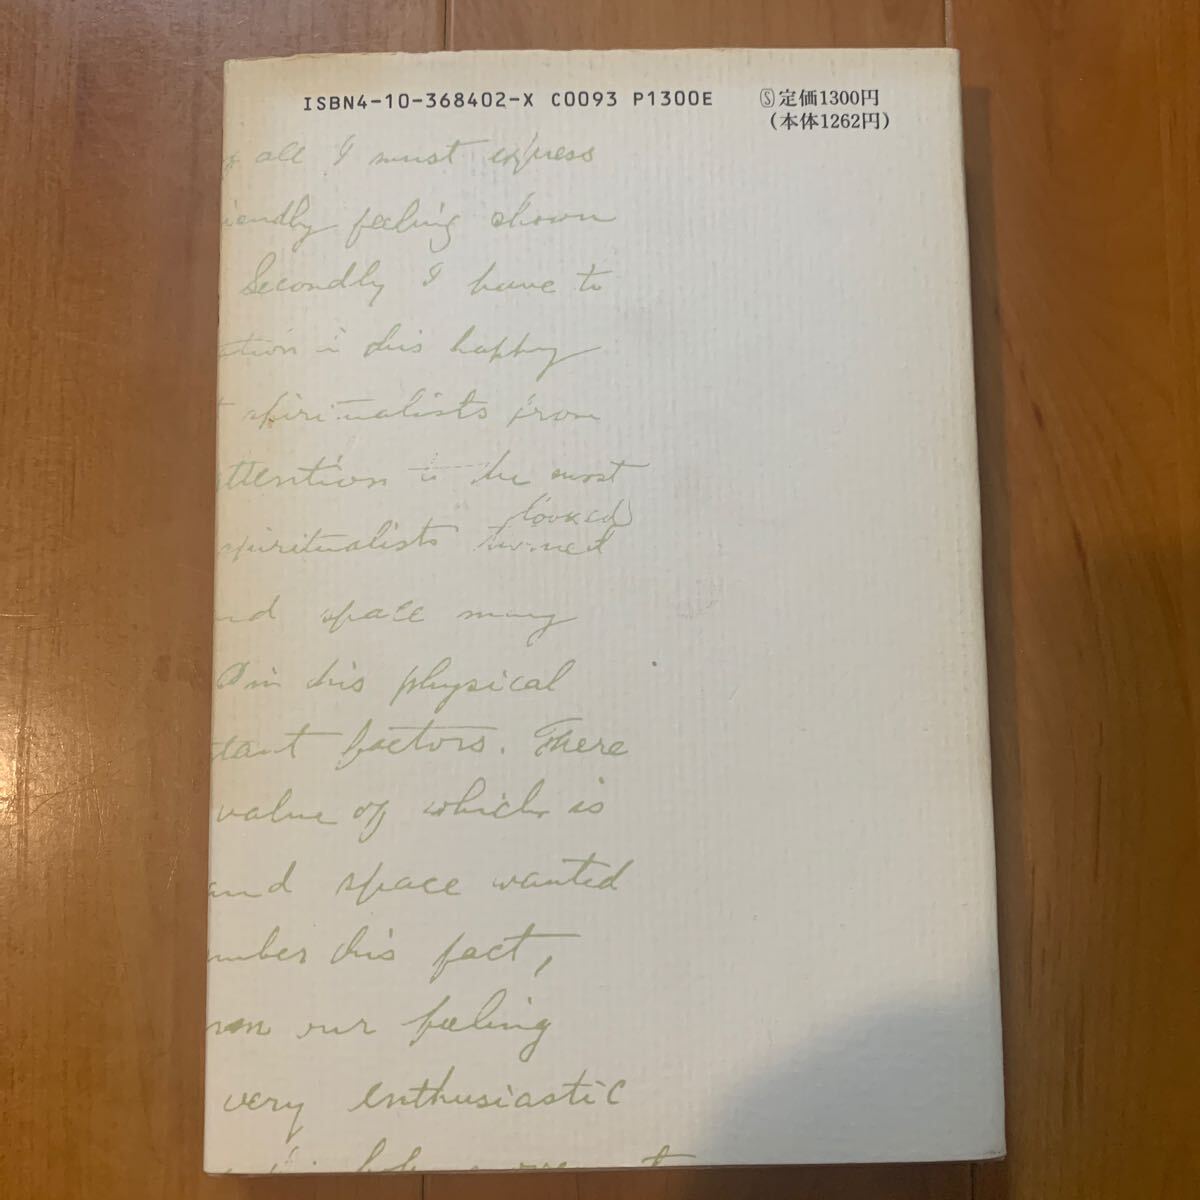 ISBN4-10-368402-X C0093 P1300E Ⓢ定価1300円
(本体1262円)
all I must express
iendly feeling shown
Secondly I have to
ation in this happy
t spiritualists from
attention is the most
looked
spiritualists turned
nd space many
in this physical
tant factors. There
value of which is
and space wanted
mber this fact,
our feeling
very enthusiastic